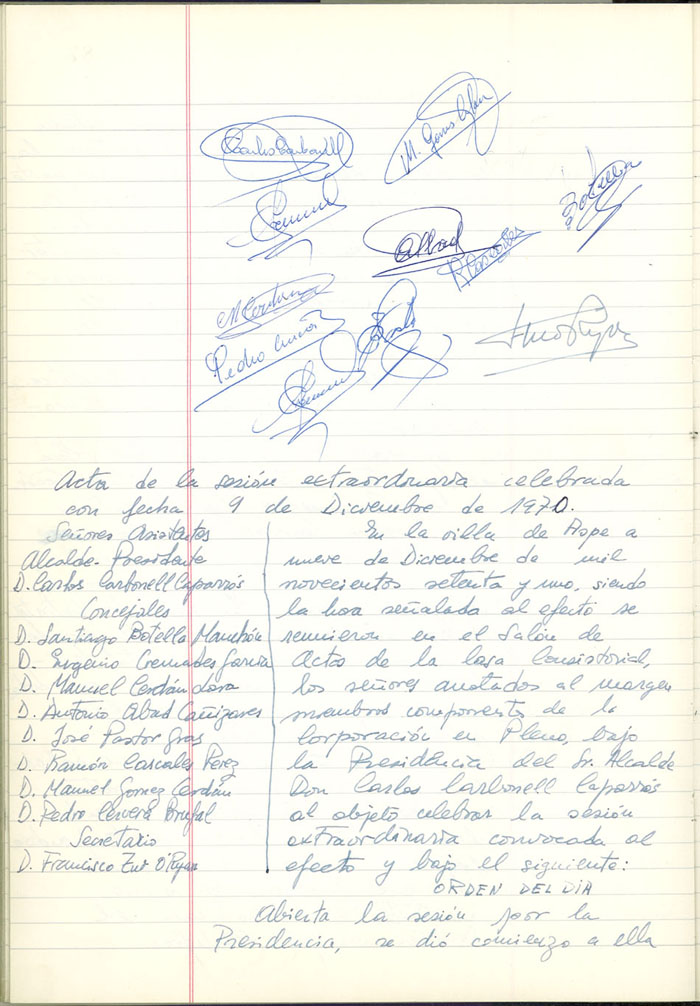 Carlos Carbonell
M. Gomez Cerdán
Botella
Abad
R. Cascales
M Cerdán
Pedro Cerverá
Acta de la sesión extraordinaria celebrada
con fecha 9 de Diciembre de 1970.
Señores Asistentes
Alcalde-Presidente
D. Carlos Carbonell Caparrós
Concejales
D. Santiago Botella Manchón
D. Eugenio Cremades García
D. Manuel Cerdán Lara
D. Antonio Abad Cañizares
D. José Pastor Gras
D. Ramón Cascales Pérez
D. Manuel Gomez Cerdán
D. Pedro Cervera Brufal
Secretario
D. Francisco O'Ryan
En la villa de Aspe a
nueve de Diciembre de mil
novecientos setenta y uno, siendo
la hora señalada al efecto se
reunieron en el Salón de
Actos de la Casa Consistorial,
los señores anotados al margen
miembros componentes de la
Corporación en Pleno, bajo
la Presidencia del Sr. Alcalde
Don Carlos Carbonell Caparrós
al objeto celebrar la sesión
extraordinaria convocada al
efecto y bajo el siguiente:
ORDEN DEL DIA
Abierta la sesión por la
Presidencia, se dió comienzo a ella